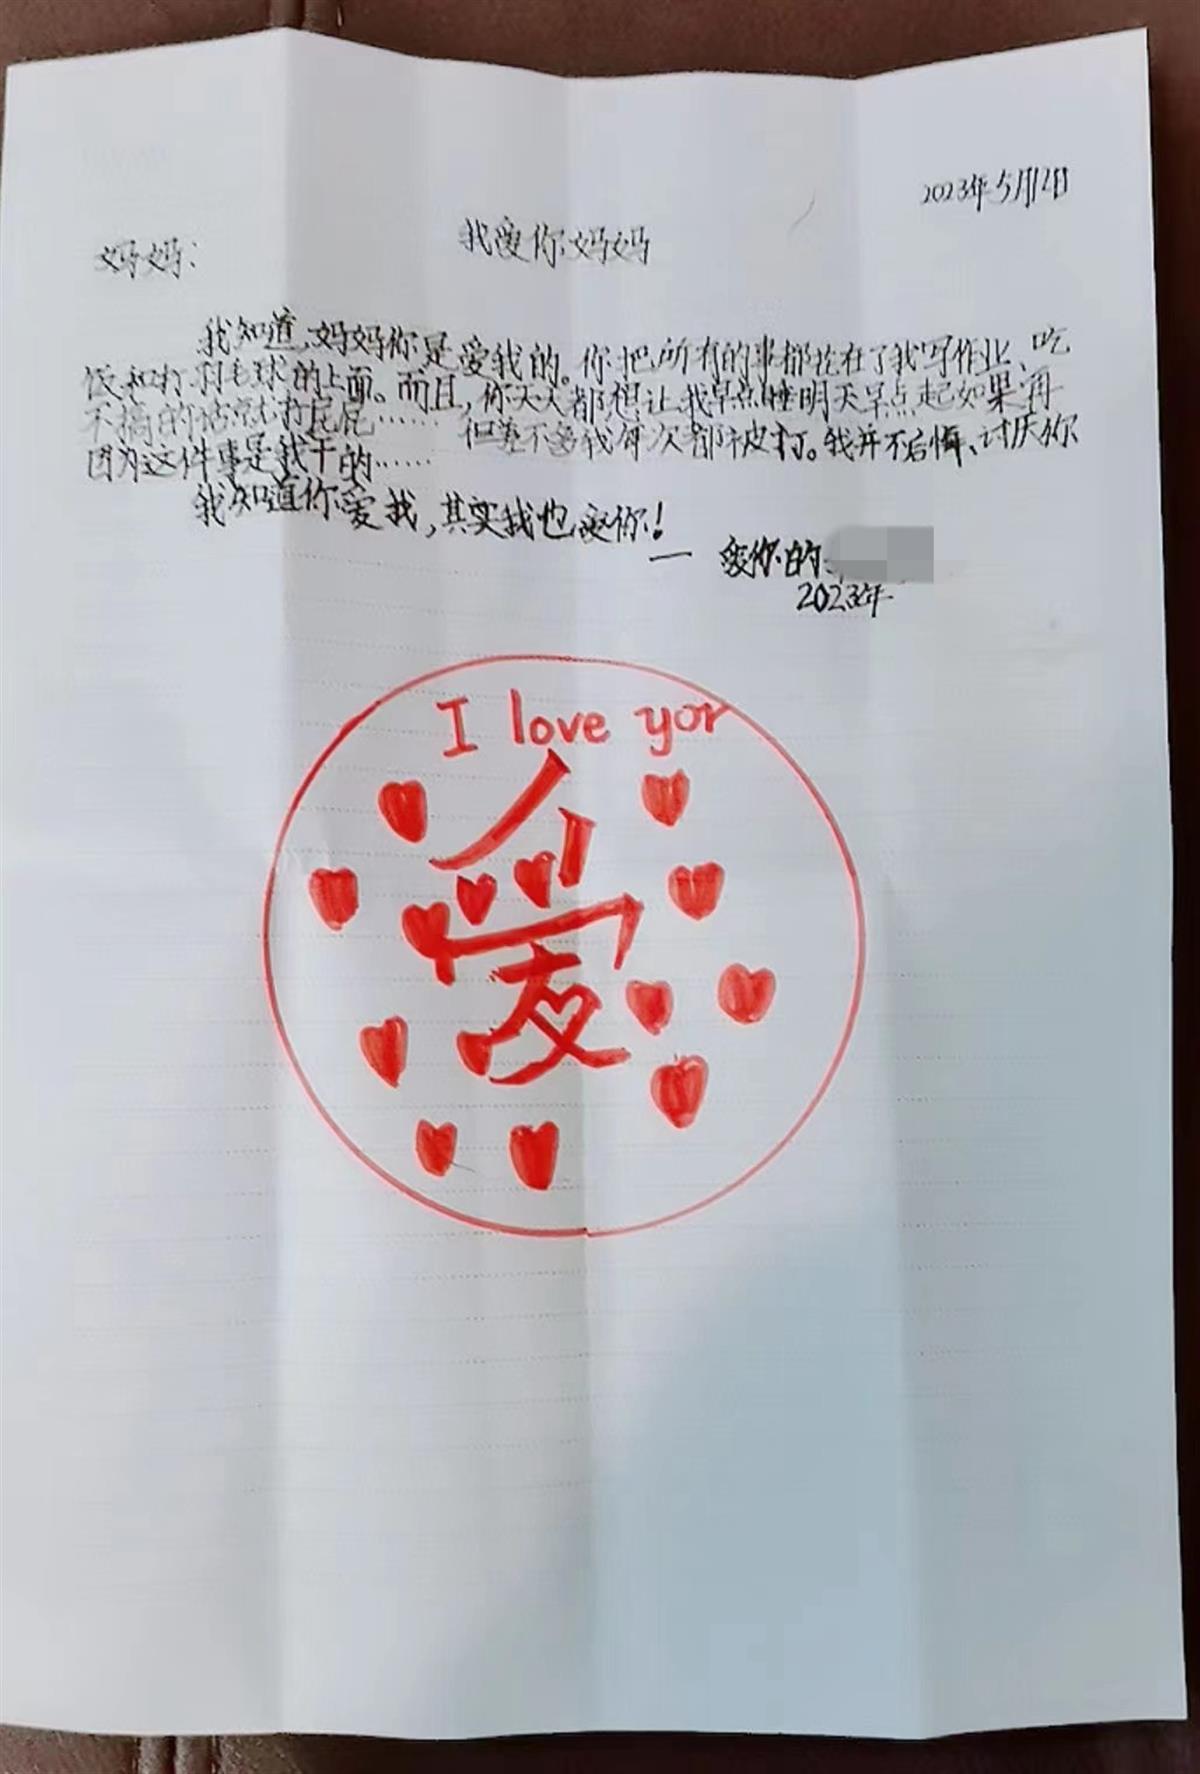 2023年5月12日
我爱你妈妈
妈妈:
我知道,妈妈你是爱我的。你把所有的事都花在了我写作业、吃
饭和打羽毛球的上面。而且,你天天都想让我早点睡明天早点起如果再
不搞的话就打屁屁…… 但差不多我每次都被打。我并不后悔、讨厌你
因为这件事是我干的……
我知道你爱我,其实我也爱你!
— 爱你的
2023年
I love yor
爱